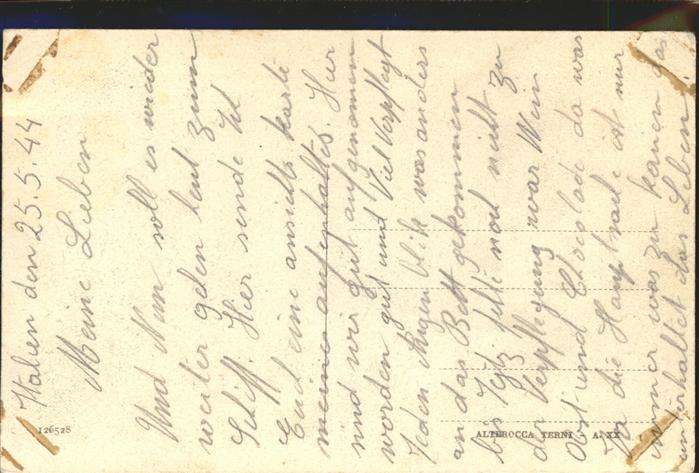 Italien den 25.5.44
Meine Lieben
Und Nun soll es wieder
weiter gehen heut zum
Schiff. Hier sende Ich
Euch eine ansichts karte
meines aufenhaltes. Hier
sind wir gut aufgenomen
worden gut und Viel Verpflegt
Jeden Augen blik was anders
an das Bett gekommen
bis Jetz felte noch nicht zu
der Verpflegung war Wein
Obst und Chocolade da was
Ja die Haupt sache ist nur
immer was zu kauen das
unterhaltet das Leben
126528
ALTEROCCA TERNI A. XX